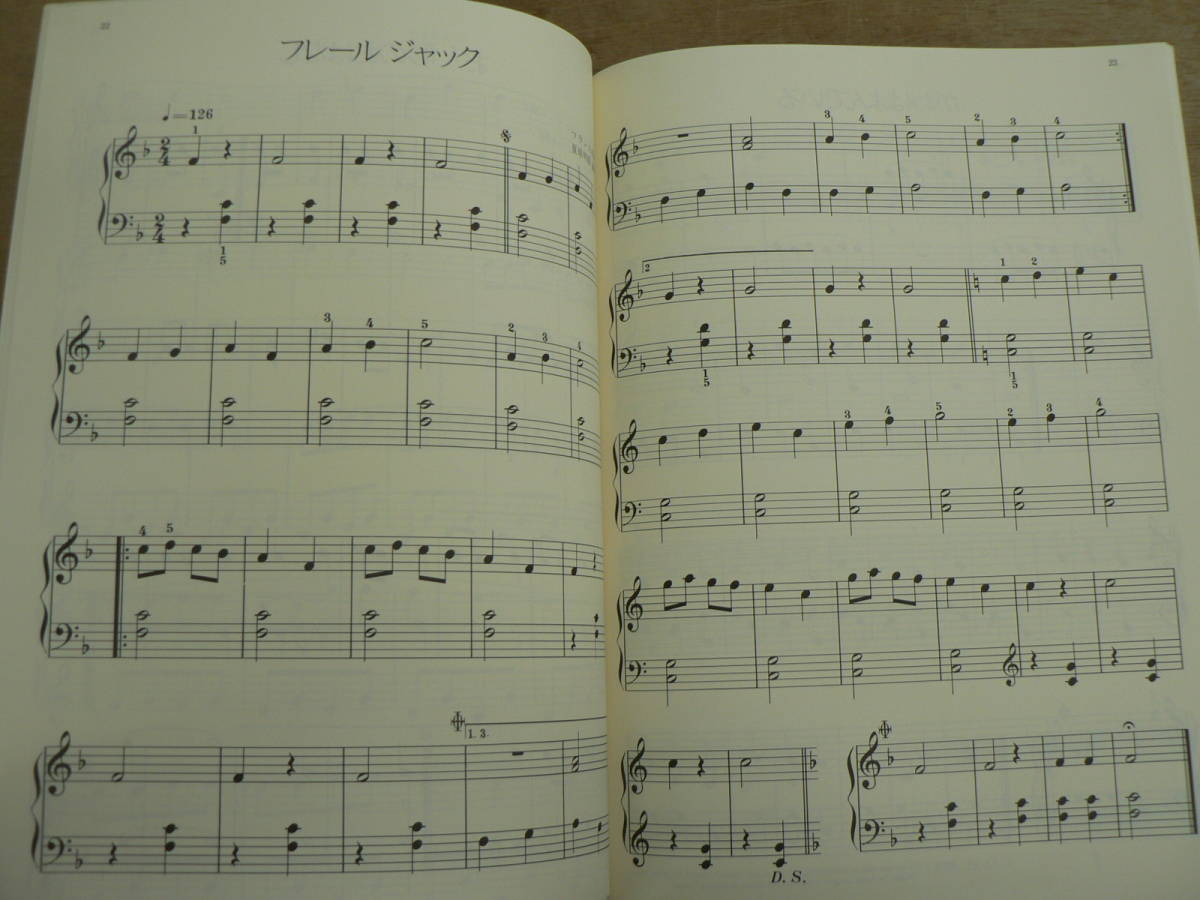 22
フレール ジャック
♩=126
1
2
4
2
4
1
5
3
4
5
2
3
4
4
5
1. 3.
23
3
4
5
2
3
4
2
1
2
1
5
1
5
3
4
5
2
3
4
D. S.